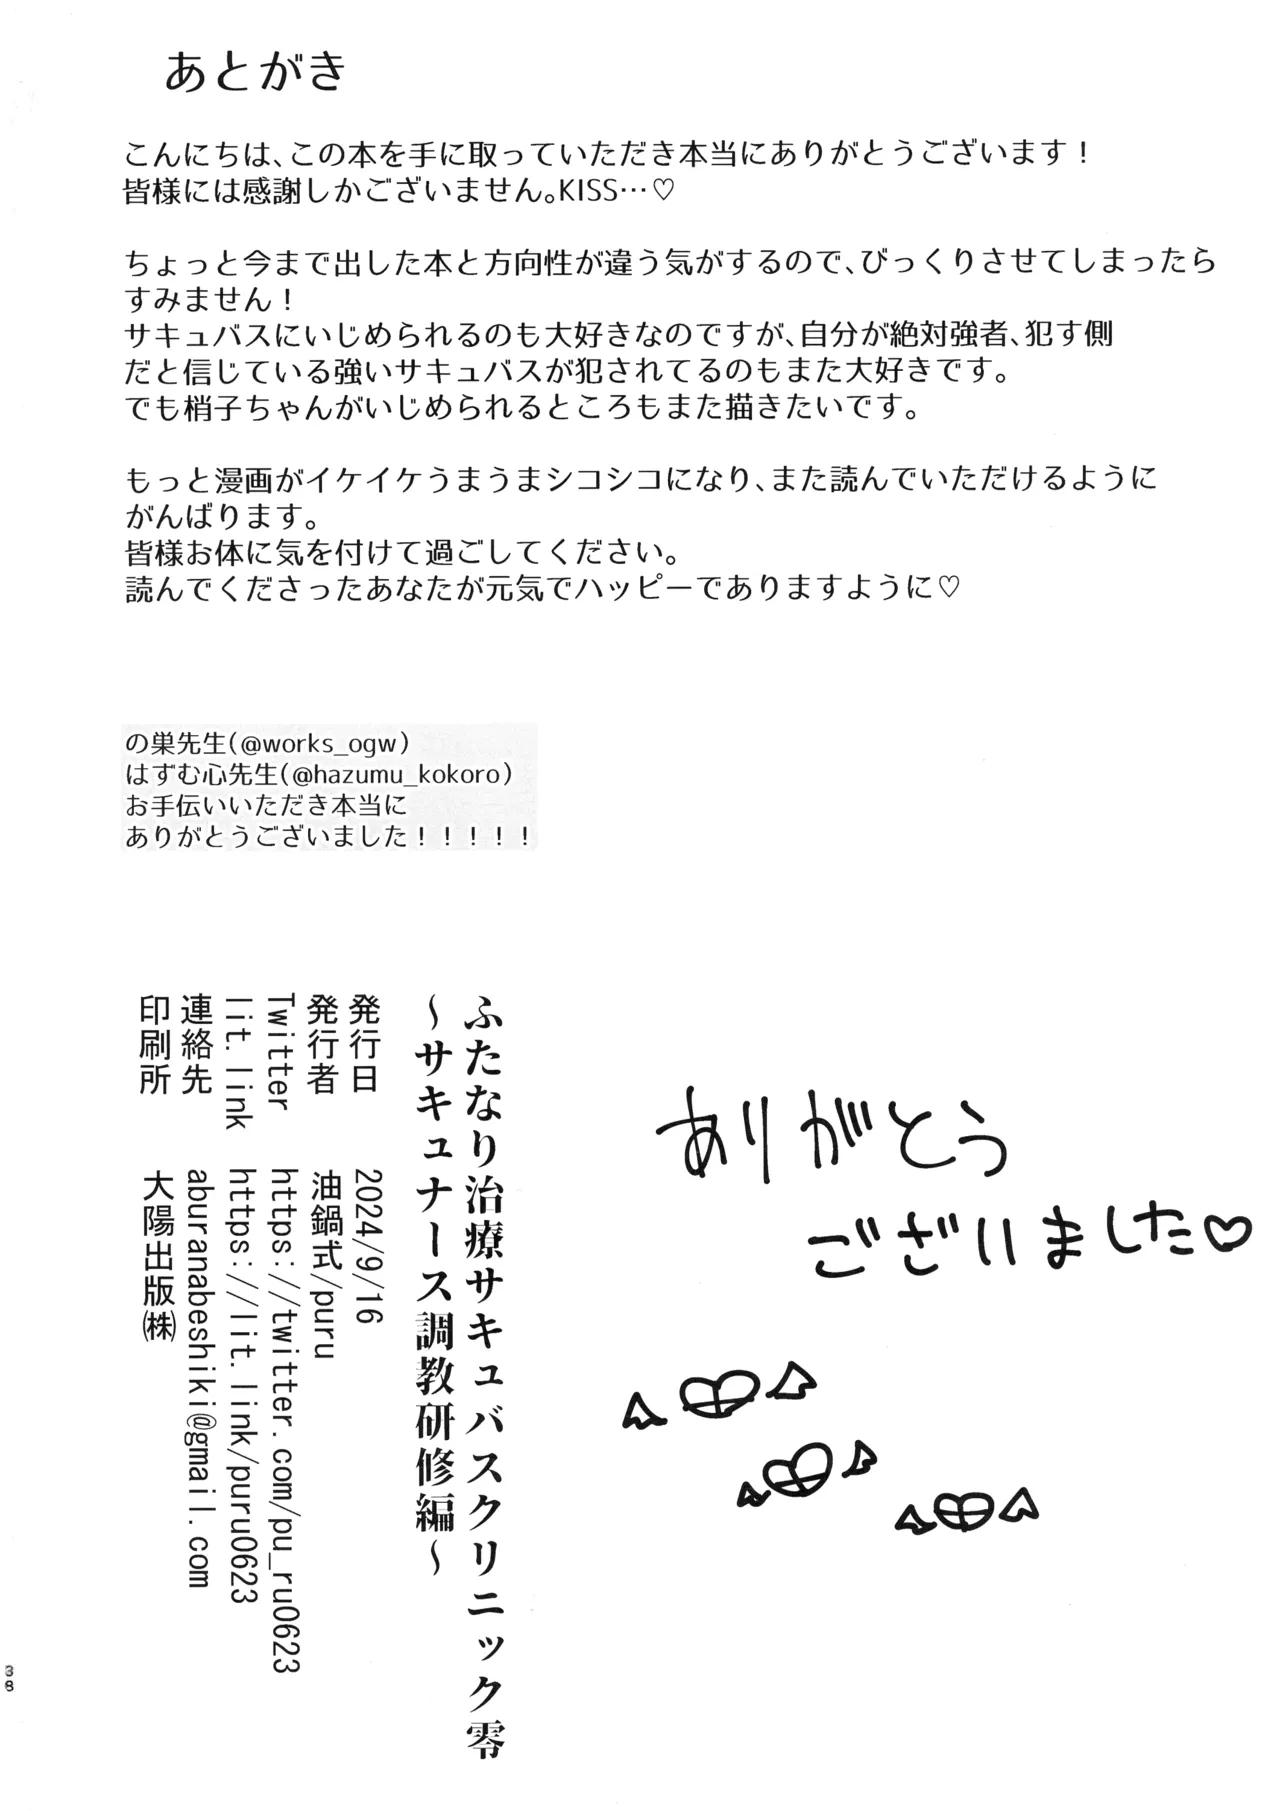 あとがき
こんにちは、この本を手に取っていただき本当にありがとうございます！
皆様には感謝しかございません。KISS…♡
ちょっと今まで出した本と方向性が違う気がするので、びっくりさせてしまったら
すみません！
サキュバスにいじめられるのも大好きなのですが、自分が絶対強者、犯す側
だと信じている強いサキュバスが犯されてるのもまた大好きです。
でも梢子ちゃんがいじめられるところもまた描きたいです。
もっと漫画がイケイケうまうまシコシコになり、また読んでいただけるように
がんばります。
皆様お体に気を付けて過ごしてください。
読んでくださったあなたが元気でハッピーでありますように♡
の巣先生(@works_ogw)
はずむ心先生(@hazumu_kokoro)
お手伝いいただき本当に
ありがとうございました！！！！！
ふたなり治療サキュバスクリニック零
～サキュナース調教研修編～
発行日 2024/9/16
発行者 油鍋式/puru
Twitter https://twitter.com/pu_ru0623
lit.link https://lit.link/puru0623
連絡先 aburanabeshiki@gmail.com
印刷所 大陽出版㈱
ありがとう
ございました♡
38